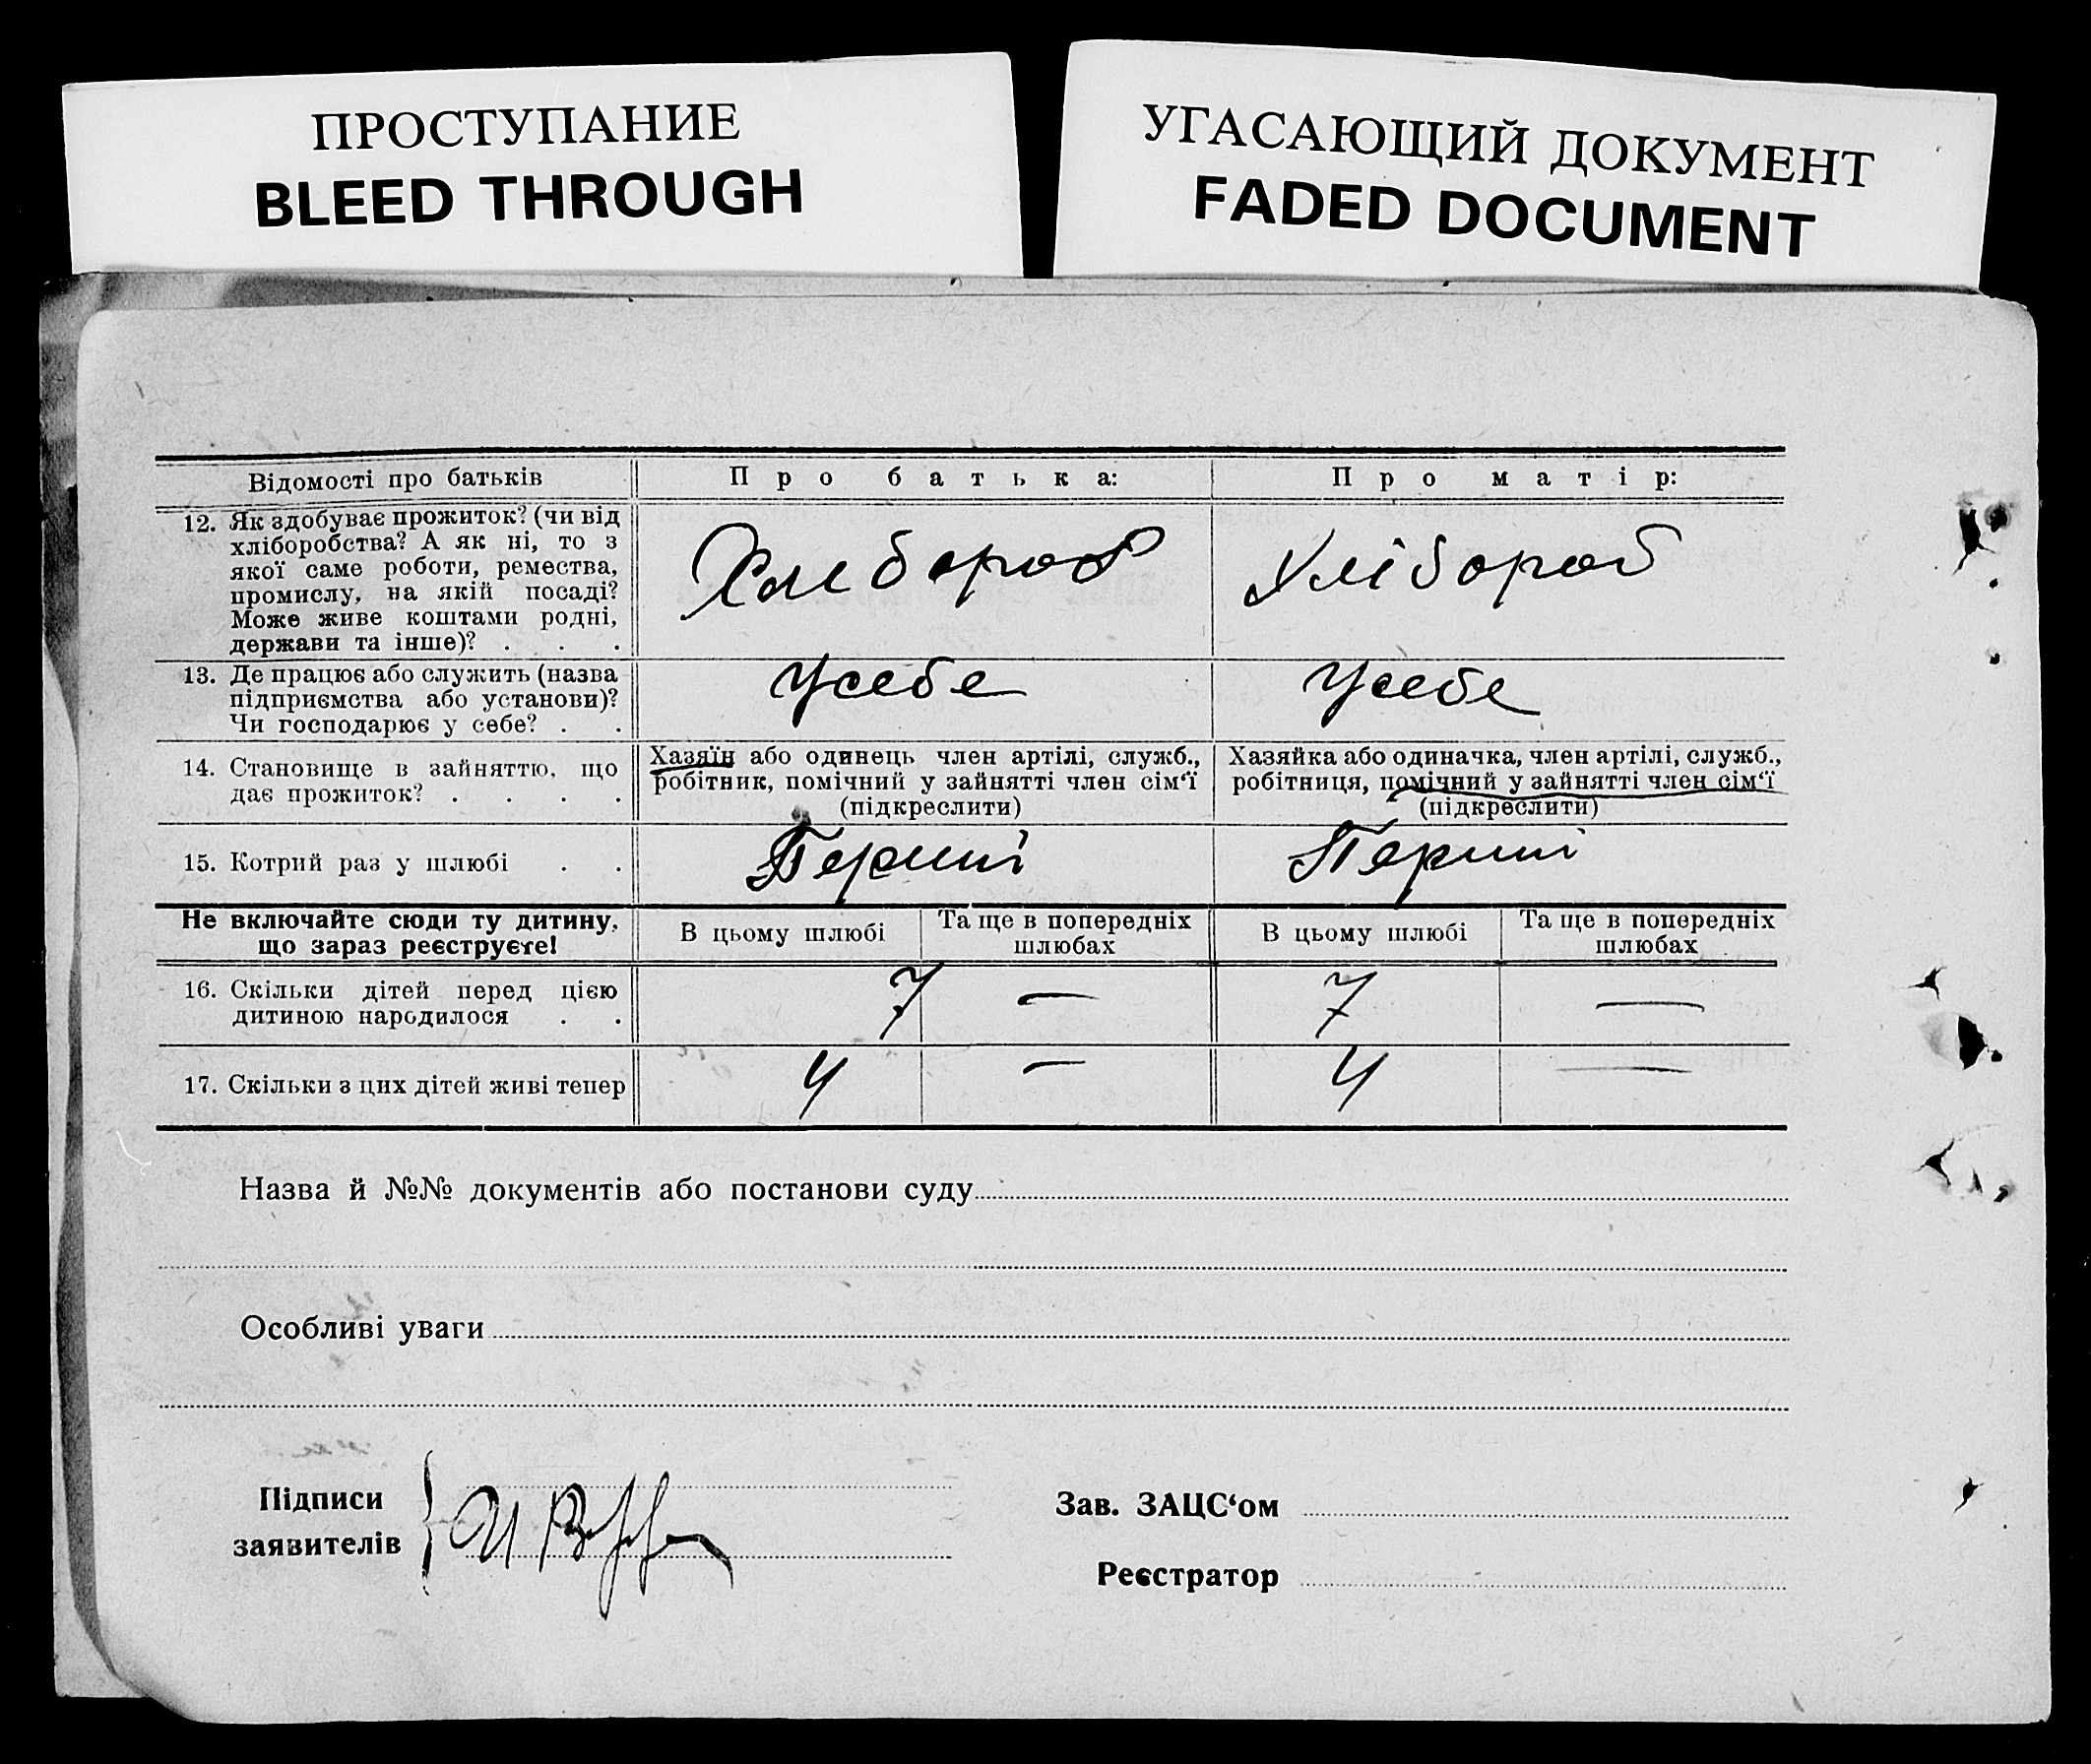 ПРОСТУПАНИЕ
BLEED THROUGH
УГАСАЮЩИЙ ДОКУМЕНТ
FADED DOCUMENT
Відомості про батьків
Про батька:
Про матір:
12. Як здобуває прожиток? (чи від
хліборобства? А як ні, то з
якої саме роботи, ремества,
промислу, на якій посаді?
Може живе коштами родні,
держави та інше)? . . .
Хлібороб
Хлібороб
13. Де працює або служить (назва
підприємства або установи)?
Чи господарює у себе? . .
Усебе
Усебе
14. Становище в зайняттю, що
дає прожиток? . . . .
Хазяїн або одинець член артілі, служб.,
робітник, помічний у зайнятті член сім‘ї
(підкреслити)
Хазяйка або одиначка, член артілі, служб.,
робітниця, помічний у зайнятті член сім‘ї
(підкреслити)
15. Котрий раз у шлюбі . .
Перший
Перший
Не включайте сюди ту дитину,
що зараз реєструєте!
В цьому шлюбі
Та ще в попередніх
шлюбах
В цьому шлюбі
Та ще в попередніх
шлюбах
16. Скільки дітей перед цією
дитиною народилося . .
7 — 7 —
17. Скільки з цих дітей живі тепер
4 — 4 —
Назва й №№ документів або постанови суду
Особливі уваги
Підписи
заявителів
Зав. ЗАЦС‘ом
Реєстратор